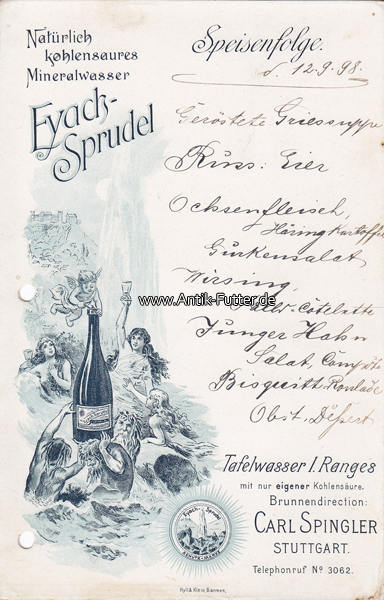 Natürlich
kohlensaures
Mineralwasser
Eyach-
Sprudel
Speisenfolge.
d. 12.9.98.
Geröstete Griessuppe
Russ: Eier
Ochsenfleisch,
Häringkartoffel
Gurkensalat
Wirsing,
Cotelette
Junger Hahn
Salat, Compote
Bisquitt-Roulade
Obst. Desert
www.Antik-Futter.de
Tafelwasser I. Ranges
mit nur eigener Kohlensäure.
Brunnendirection:
CARL SPINGLER
STUTTGART.
Telephonruf No 3062.
Eyach-Sprudel
SCHUTZ-MARKE